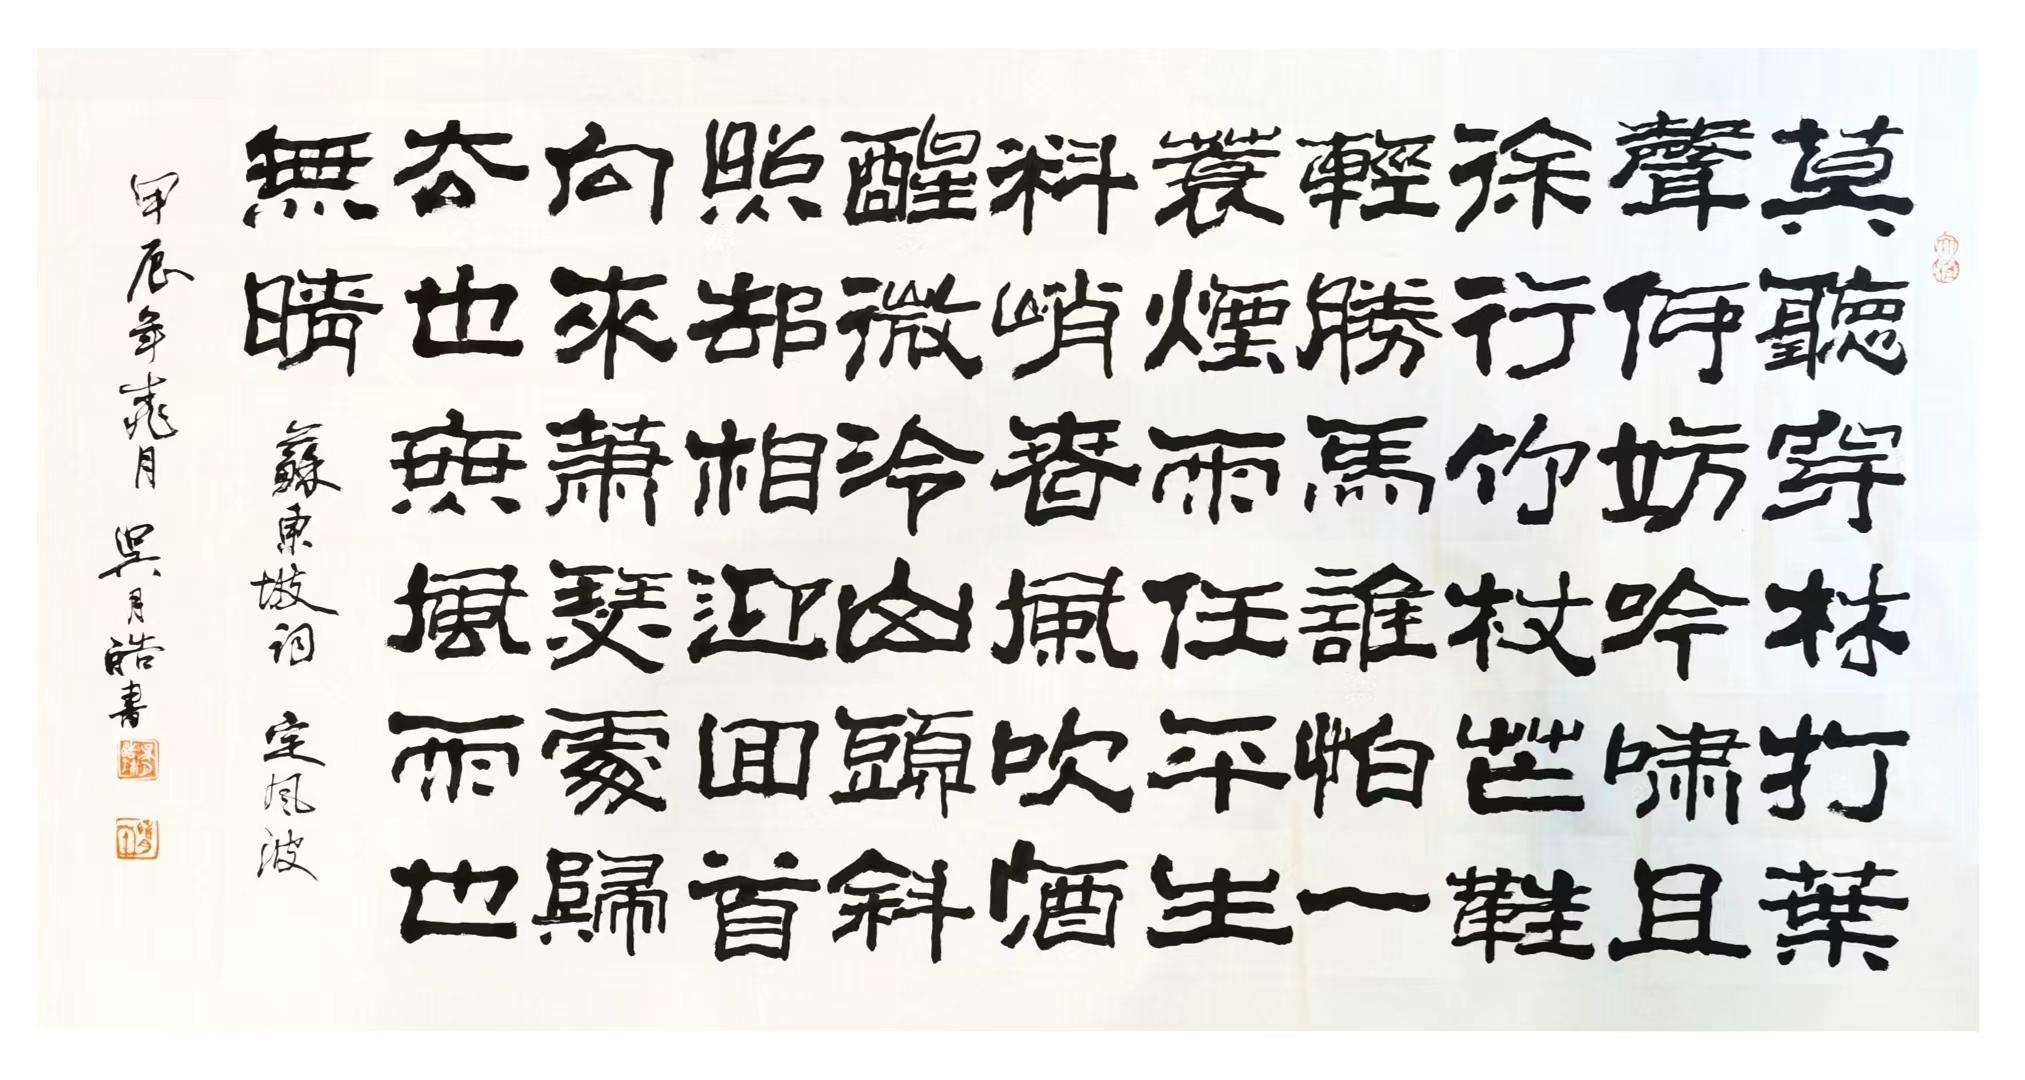 莫聽穿林打葉
聲何妨吟嘯且
徐行竹杖芒鞋
輕勝馬誰怕一
蓑煙雨任平生
料峭春風吹酒
醒微冷山頭斜
照却相迎回首
向來蕭瑟處歸
去也無風雨也
無晴
蘇東坡詞 定風波
甲辰年桃月 吳月皓書